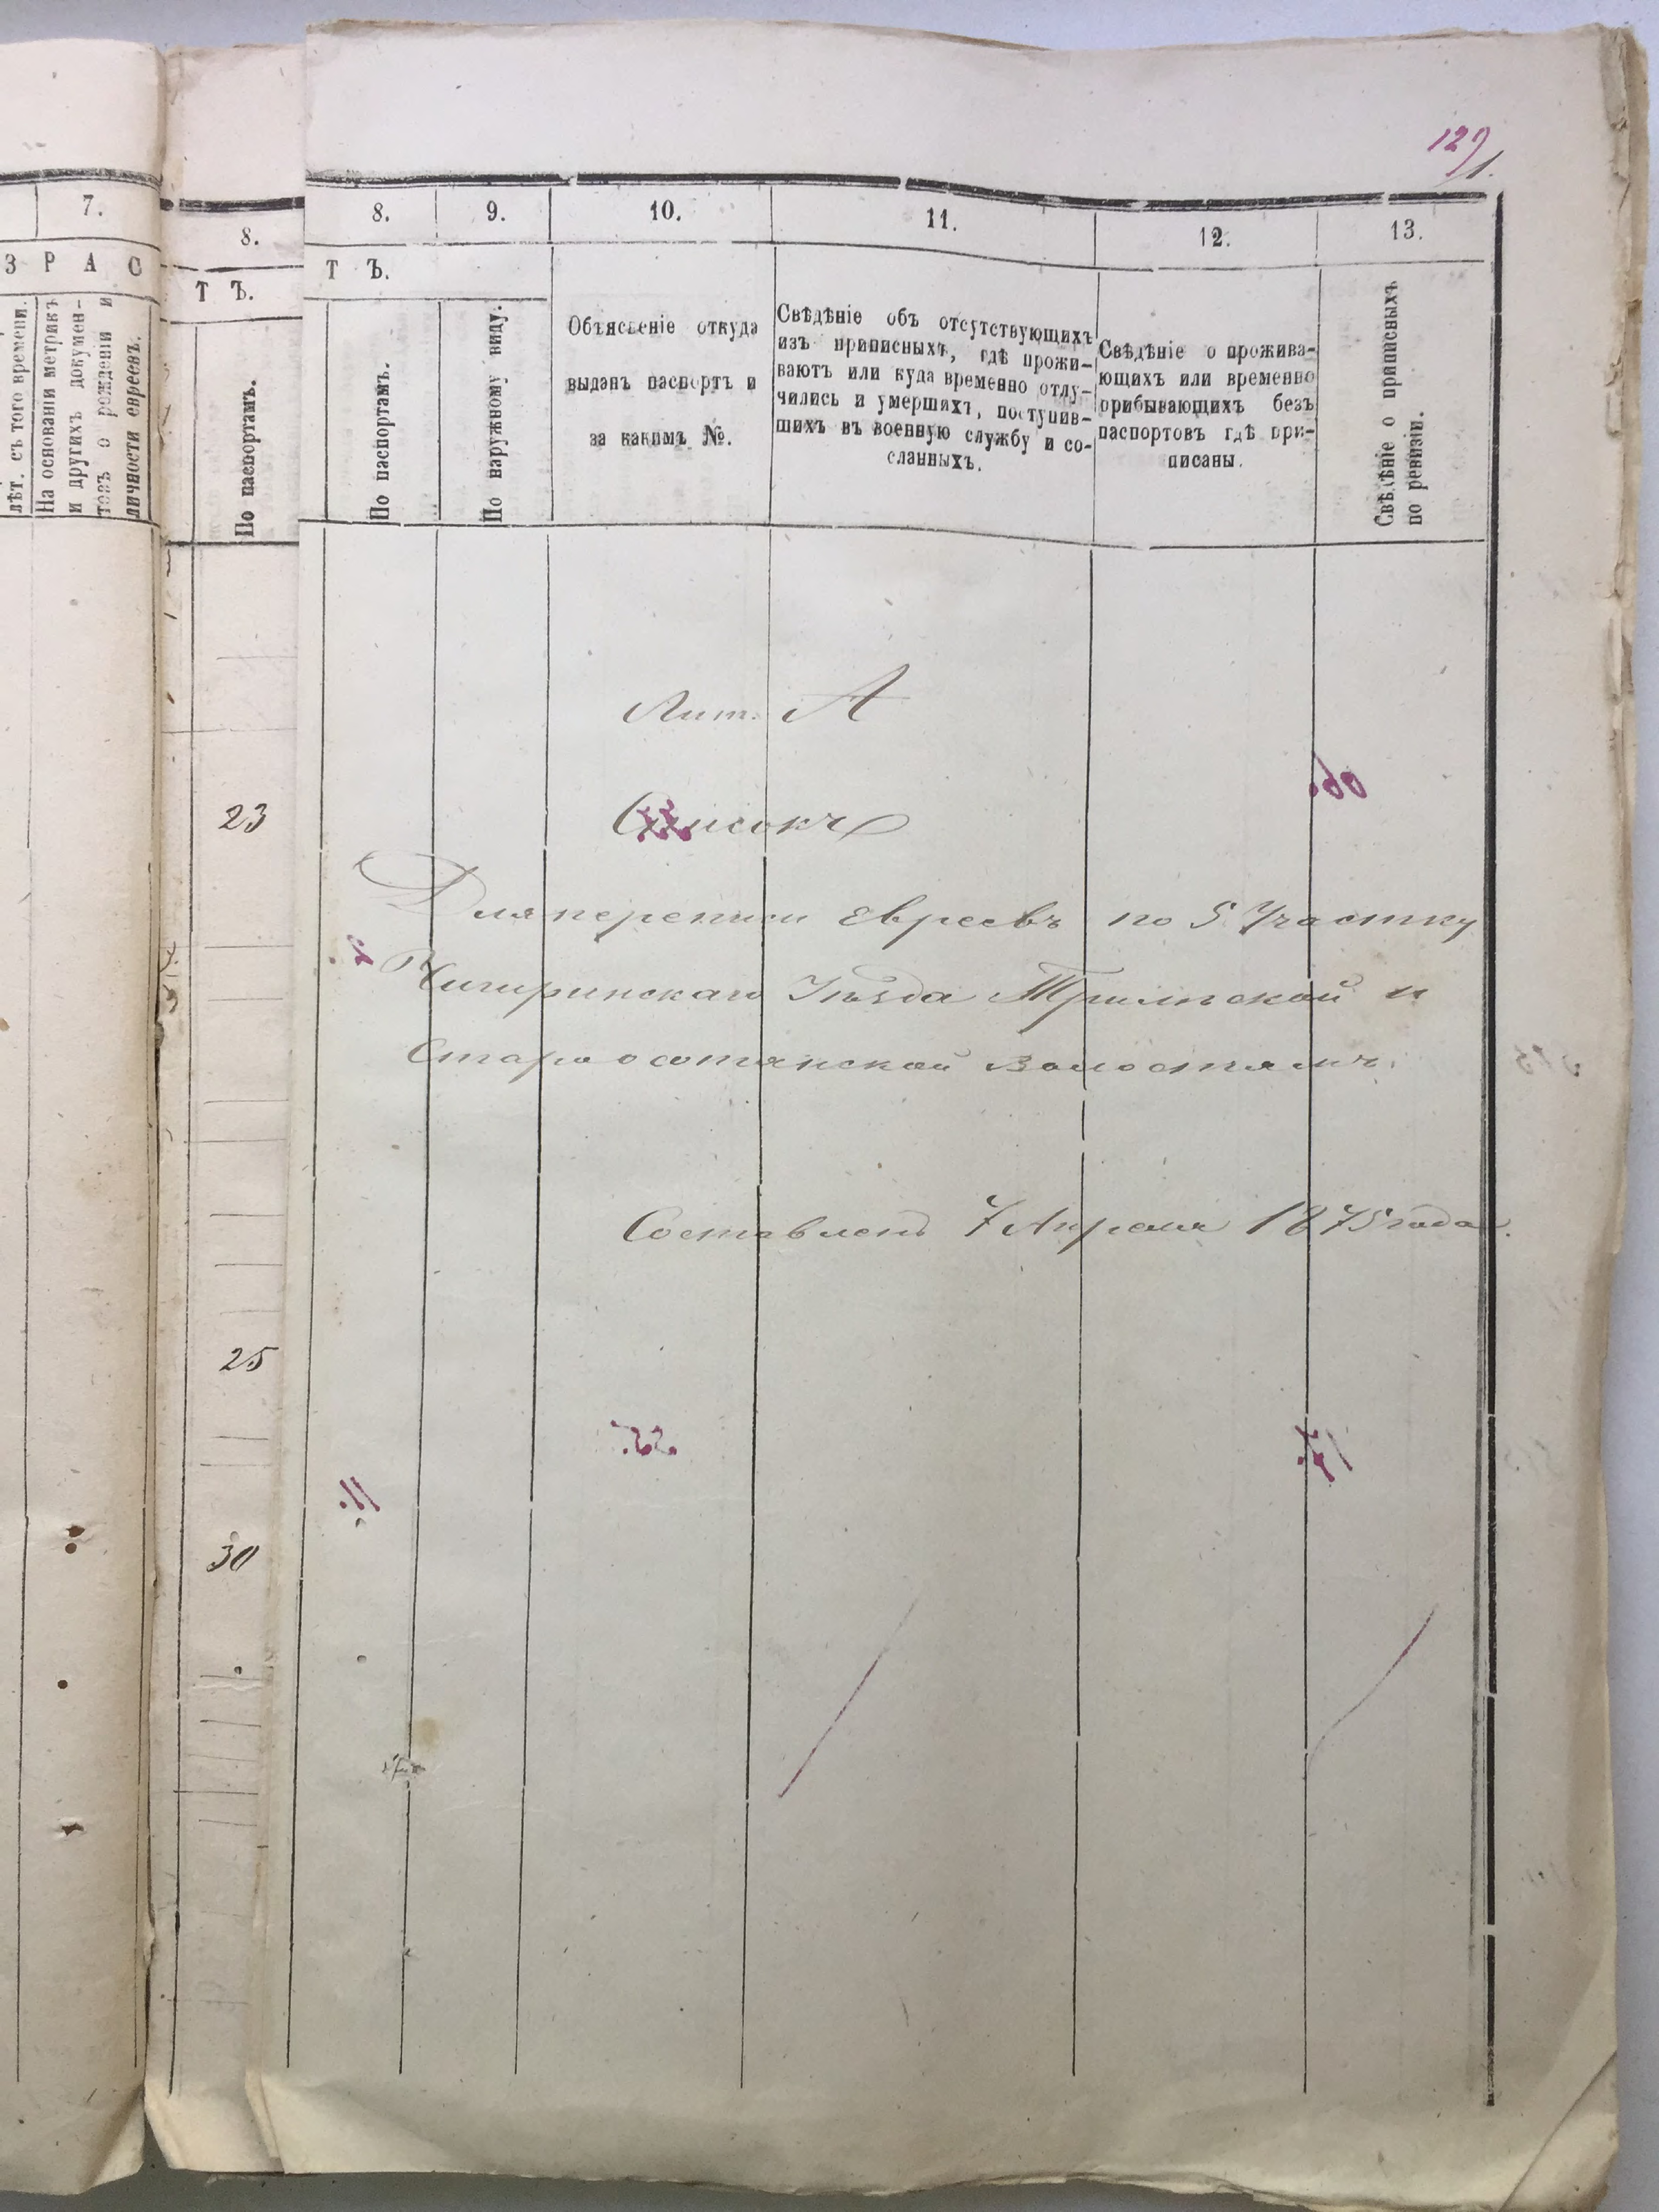 129/1.
7.
З Р А С
лѣт. съ того времени.
На основаніи метрикъ
и другихъ докумен-
товъ о рожденіи и
личности евреевъ.
8.
Т Ъ.
По паспортамъ.
23
25
30
8.
9.
10.
11.
12.
13.
Т Ъ.
По паспортамъ.
По наружному виду.
Объясненіе откуда
выданъ паспортъ и
за какимъ №.
Свѣдѣніе объ отсутствующихъ
изъ приписныхъ, гдѣ прожи-
ваютъ или куда временно отлу-
чились и умершихъ, поступив-
шихъ въ военную службу и со-
сланныхъ.
Свѣдѣніе о прожива-
ющихъ или временно
прибывающихъ безъ
паспортовъ гдѣ при-
писаны.
Свѣдѣніе о приписныхъ
по ревизіи.
Лит. А
Списокъ
Для переписи Евреевъ по 5 Участку
Чигиринскаго Уѣзда Трилѣской и
Староосотянской Волостямъ.
Составленъ 7 Апреля 1875 года.